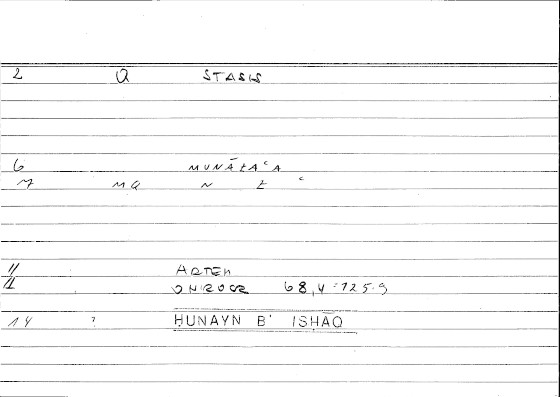 2 Q STASIS
6 MUNĀZAʿA
7 MQ N Z ʿ
11 ARTEM
12 ONIROCR 68,4-125.9
14 ? ḤUNAYN B' ISḤĀQ